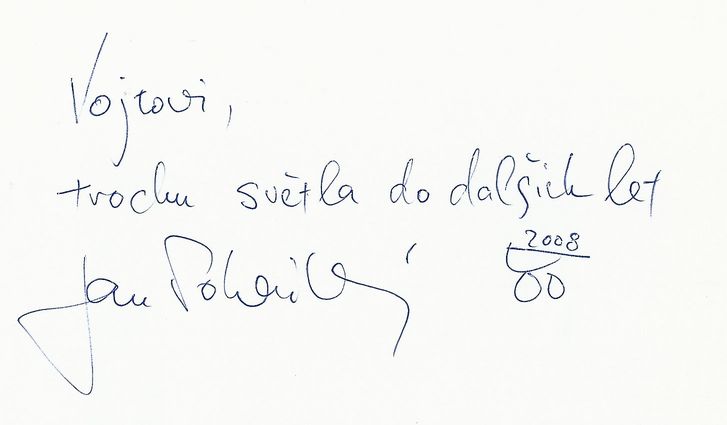 Vojtovi,
trochu světla do dalších let
Jan Pohunký
2008